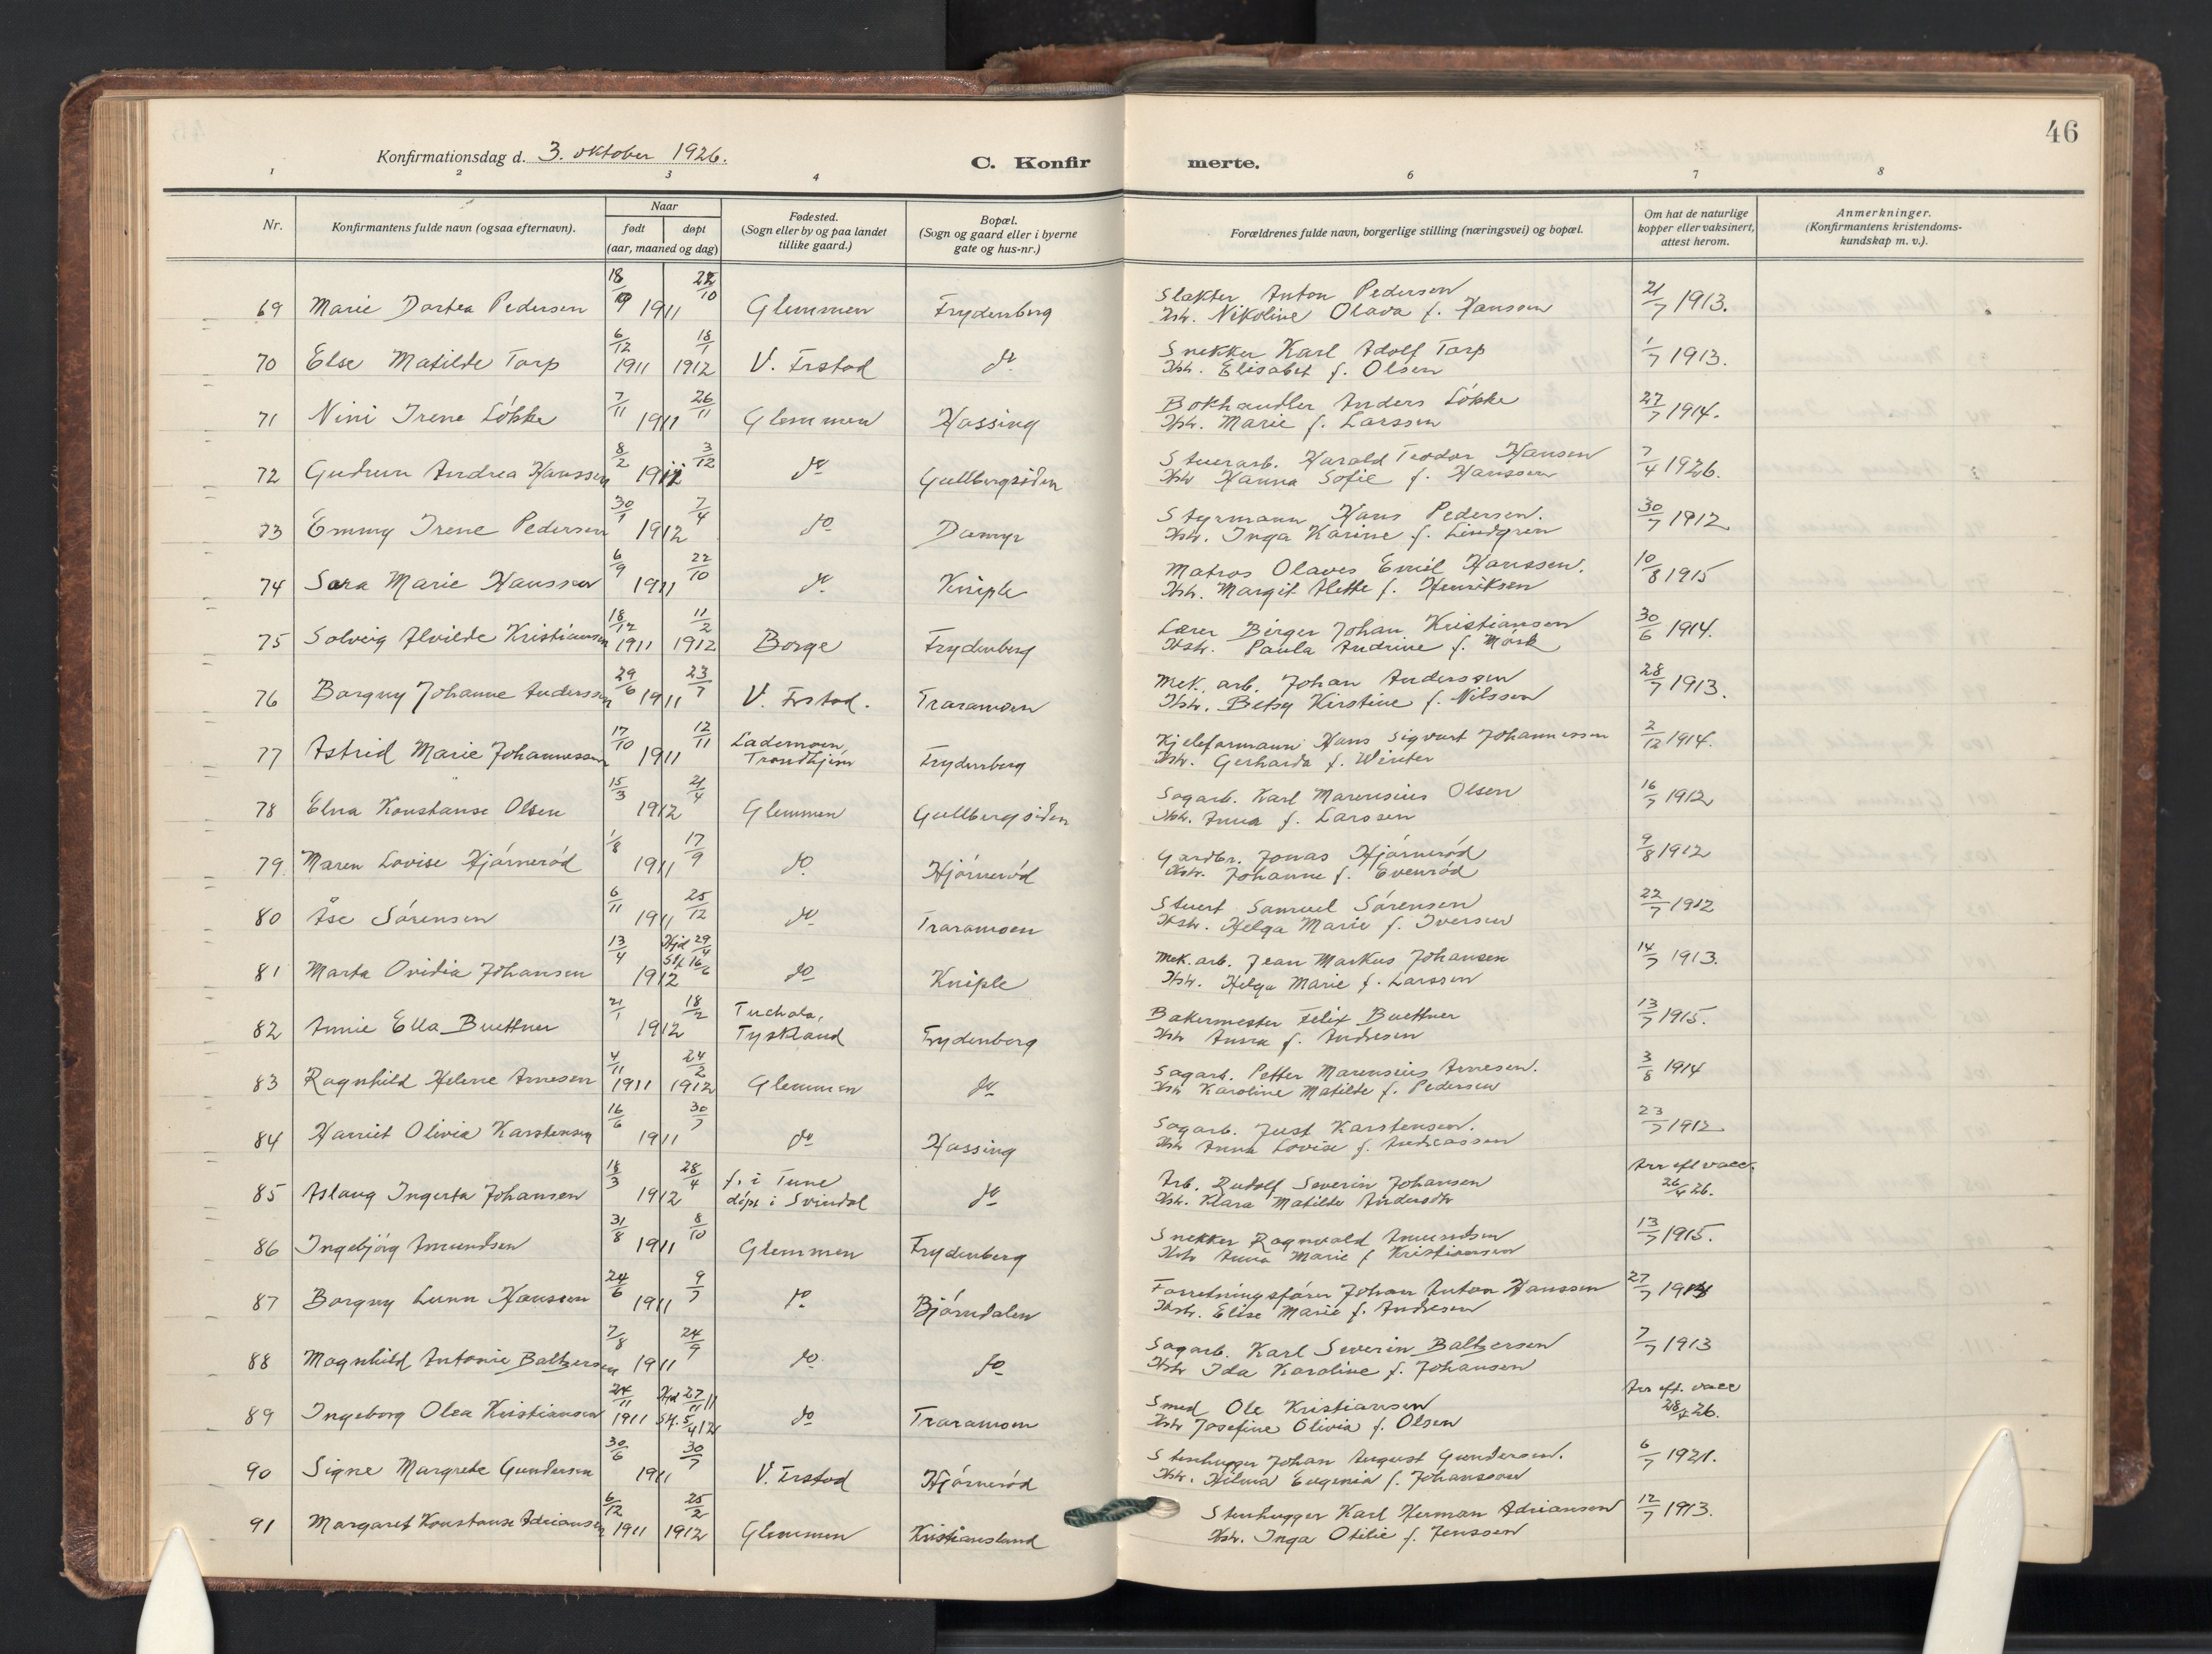 46
Konfirmationsdag d. 3. oktober 1926.
C. Konfirmerte.
1 2 3 4 6 7 8
Nr. Konfirmantens fulde navn (ogsaa efternavn). Naar født døpt (aar, maaned og dag) Fødested. (Sogn eller by og paa landet tillike gaard.) Bopæl. (Sogn og gaard eller i byerne gate og hus-nr.) Forældrenes fulde navn, borgerlige stilling (næringsvei) og bopæl. Om hat de naturlige kopper eller vaksinert, attest herom. Anmerkninger. (Konfirmantens kristendoms-kundskap m. v.).
69 Marie Dortea Pedersen 18/9 1911 22/10 Glemmen Frydenberg Slakter Anton Pedersen 21/7 1913.
Hstr. Nikoline Olava f. Hanssen
70 Else Matilde Torp 6/12 1911 18/1 1912 V. Frstad do Snekker Karl Adolf Torp 1/7 1913.
Hstr. Elisabet f. Olsen
71 Nini Irene Løkke 7/11 1911 26/11 Glemmen Hassing Bokhandler Anders Løkke 27/7 1914.
Hstr. Marie f. Larssen
72 Gudrun Andrea Hanssen 8/2 3/12 do Gullbergsiden Stuerarb. Harald Teodor Hansen 7/4 1926.
Hstr Hanna Sofie f. Hanssen
73 Emmy Irene Pedersen 30/1 1912 7/4 do Damyr Styrmann Hans Pedersen. 30/7 1912
Hstr. Inga Karine f. Lindgren
74 Sara Marie Hanssen 6/9 1911 22/10 do Kniple Matros Olaves Emil Hanssen. 10/8 1915
Hstr. Margit Alette f. Henriksen
75 Solveig Alvilde Kristiansen 18/12 1911 11/2 1912 Borge Frydenberg Lærer Birger Johan Kristiansen 30/6 1914.
Hstr. Paula Andrine f. Mørk
76 Borgny Johanne Anderssen 29/6 1911 23/7 V. Frstad. Traramoen Mek. arb. Johan Anderssen 28/7 1913.
Hstr. Betsy Kirstine f. Nilssen
77 Astrid Marie Johannessen 17/10 1911 12/11 Lademoen, Trondhjem Frydenberg Kjeleformann Hans Sigvart Johannessen 2/12 1914.
Hstr. Gerharda f. Winter
78 Elna Konstanse Olsen 15/3 1912 21/4 Glemmen Gullbergsiden Sagarb. Karl Marensius Olsen 16/7 1912
Hstr. Anna f. Larssen
79 Maren Lovise Hjørnerød 1/8 1911 17/9 do Hjørnerød Gardbr. Jonas Hjørnerød 9/8 1912
Hstr. Johanne f. Evenrød
80 Åse Sørensen 6/11 1911 25/12 do Traramoen Stuert Samuel Sørensen 22/7 1912
Hstr. Helga Marie f. Iversen
81 Marta Ovidia Johansen 13/4 1912 Hjd 29/4 Stf. 16/6 do Kniple Mek. arb. Jean Markus Johansen 14/7 1913.
Hstr. Helga Marie f. Larssen
82 Annie Ella Buettner 21/1 1912 18/2 Tuchola, Tyskland Frydenberg Bakermester Felix Buettner 13/7 1915.
Hstr Anna f. Andresen
83 Ragnhild Helene Arnesen 4/11 1911 24/2 1912 Glemmen do Sagarb. Petter Marensius Arnesen. 3/8 1914
Hstr Karoline Matilde f. Pedersen
84 Harriet Olivia Karstensen 16/6 1911 30/7 do Hassing Sagarb. Just Karstensen. 23/7 1912
Hstr Anna Lovise f. Andreassen
85 Aslaug Ingerta Johansen 18/3 1912 28/4 f. i Tune døpt i Svindal do Arb. Rudolf Severin Johansen Arr eft vacc. 26/4 26.
Hstr. Klara Matilde Andersdtr
86 Ingebjørg Amundsen 31/8 1911 8/10 Glemmen Frydenberg Snekker Ragnvald Amundsen 13/7 1915.
Hstr Anna Marie f Kristiansen
87 Borgny Lunn Hanssen 24/6 1911 9/7 do Bjørndalen Forretningsfører Johan Anton Hanssen 27/7 1914
Hstr. Elise Marie f. Andresen
88 Magnhild Antonie Baltzersen 7/8 1911 24/9 do do Sagarb. Karl Severin Baltzersen 7/7 1913
Hstr Ida Karoline f. Johansen
89 Ingeborg Olea Kristiansen 24/11 1911 Hjd 27/11 11 Stf. 5/4 12 do Traramoen Smed Ole Kristiansen Arr eft. vacc 28/4 26.
Hstr Josefine Olivia f. Olsen
90 Signe Margrete Gundersen 30/6 1911 30/7 V. Frstad Hjørnerød Stenhugger Johan August Gundersen. 6/7 1921.
Hstr. Hilma Eugenia f. Johansson
91 Margaret Konstanse Adriansen 6/12 1911 25/2 1912 Glemmen Kristianslund Stenhugger Karl Herman Adriansen 12/7 1913.
Hstr. Inga Otilie f. Jenssen